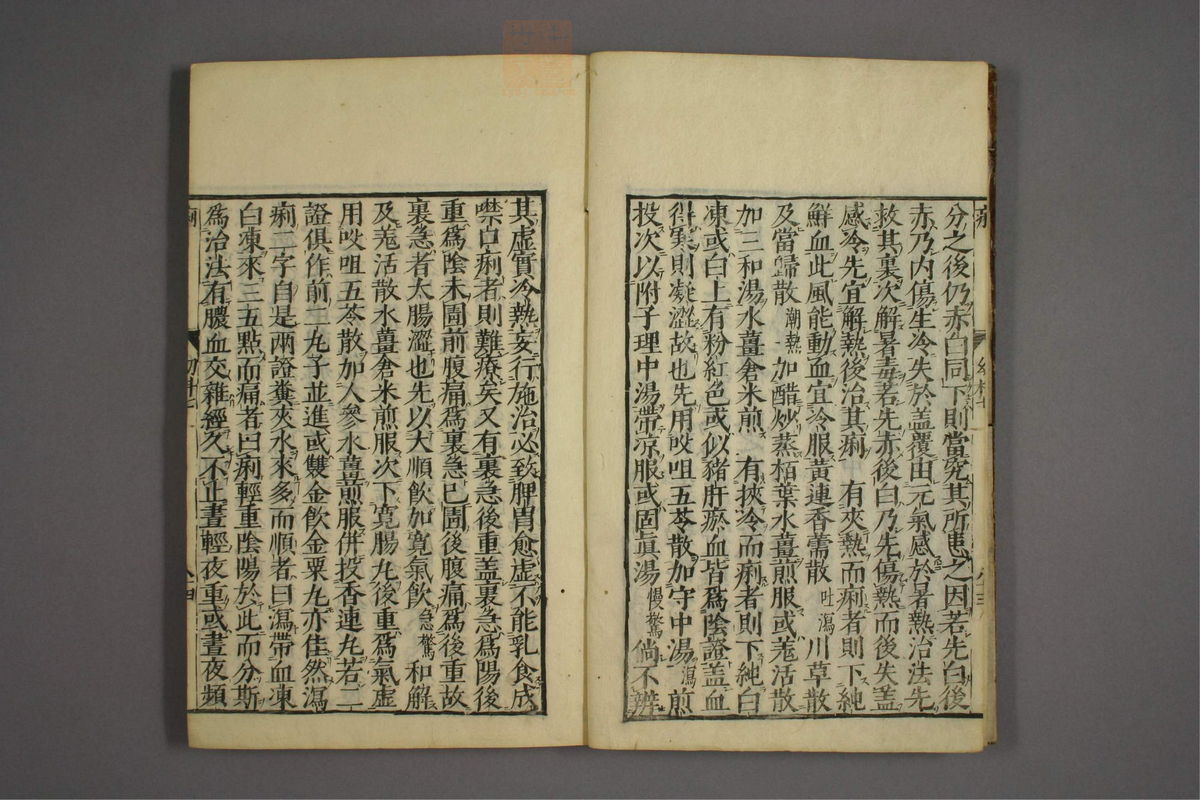 分之後仍赤白同下則當究其所患之因若先白後
赤乃內傷生冷失於盖覆由元氣感於暑熱治法先
救其裏次解暑毒若先赤後白乃先傷熱而後失盖
感冷先宜解熱後治其痢　有夾熱而痢者則下純
鮮血此風能動血宜冷服黃連香薷散吐瀉川草散
及當歸散潮熱加醋炒蒸栢葉水薑煎服或羗活散
加三和湯水薑倉米煎　有挾冷而痢者則下純白
凍或白上有粉紅色或似豬肝瘀血皆爲陰證盖血
得寒則凝澀故也先用㕮咀五苓散加守中湯瀉煎
投次以附子理中湯帶凉服或固眞湯慢驚倘不辨
其虛實冷熱妄行施治必致脾胃愈虛不能乳食成
噤口痢者則難療矣又有裏急後重盖裏急爲陽後
重爲陰未圊前腹痛爲裏急已圊後腹痛爲後重故
裏急者大腸澀也先以大順飮加寬氣飮急驚和解
及羗活散水薑倉米煎服次下寬腸丸後重爲氣虛
用㕮咀五苓散加人參水薑煎服併投香連丸若二
證俱作前二丸子並進或雙金飮金粟丸亦佳然瀉
痢二字自是兩證糞夾水來多而順者曰瀉帶血凍
白凍來三五點而痛者曰痢輕重陰陽於此而分斯
爲治法有膿血交雜經久不止晝輕夜重或晝夜頻